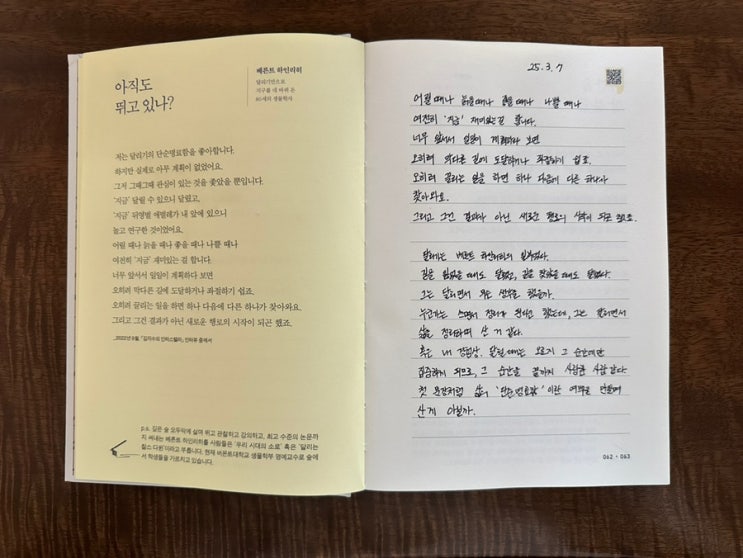 아직도
뛰고 있나?
베른트 하인리히
달리기만으로
지구를 네 바퀴 돈
80세의 생물학자
저는 달리기의 단순명료함을 좋아합니다.
하지만 실제로 아무 계획이 없었어요.
그저 그때그때 관심이 있는 것을 쫓았을 뿐입니다.
'지금' 달릴 수 있으니 달렸고,
'지금' 뒤영벌 애벌레가 내 앞에 있으니
놀고 연구한 것이었어요.
어릴 때나 늙을 때나 좋을 때나 나쁠 때나
여전히 '지금' 재미있는 걸 합니다.
너무 앞서서 일일이 계획하다 보면
오히려 막다른 길에 도달하거나 좌절하기 쉽죠.
오히려 끌리는 일을 하면 하나 다음에 다른 하나가 찾아와요.
그리고 그건 결과가 아닌 새로운 행로의 시작이 되곤 했죠.
_2022년 9월, 「김지수의 인터스텔라」, 인터뷰 중에서
p.s. 깊은 숲 오두막에 살며 뛰고 관찰하고 강의하고, 최고 수준의 논문까
지 써내는 베른트 하인리히를 사람들은 '우리 시대의 소로' 혹은 '달리는
찰스 다윈'이라고 부릅니다. 현재 버몬트대학교 생물학부 명예교수로 숲에
서 학생들을 가르치고 있습니다.
25. 3. 7
어릴 때나 늙을 때나 좋을 때나 나쁠 때나
여전히 '지금' 재미있는 걸 합니다.
너무 앞서서 일일이 계획하다 보면
오히려 막다른 길에 도달하거나 좌절하기 쉽죠.
오히려 끌리는 일을 하면 하나 다음에 다른 하나가
찾아와요.
그리고 그건 결과가 아닌 새로운 행로의 시작이 되곤 했죠.
달리기는 베른트 하인리히의 일과였다.
길을 잃었을 때도 달렸고, 길을 찾았을 때도 달렸다.
그는 달리면서 무슨 생각을 했을까.
누군가는 스면서 정리가 된다고 했는데, 그는 달리면서
삶을 정리하며 산 거 같다.
혹은 내 경험상. 달릴 때는 오로지 그 순간에만
집중하게 되므로, 그 순간을 끝까지 사람은 사람 같다
첫 문장처럼 삶의 '단순 명료함'이란 여유를 만들며
산 게 아닐까.
062 • 063